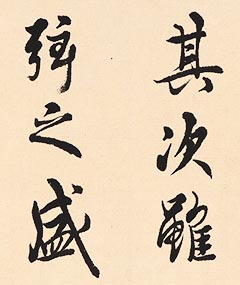 其次雖
弦之盛